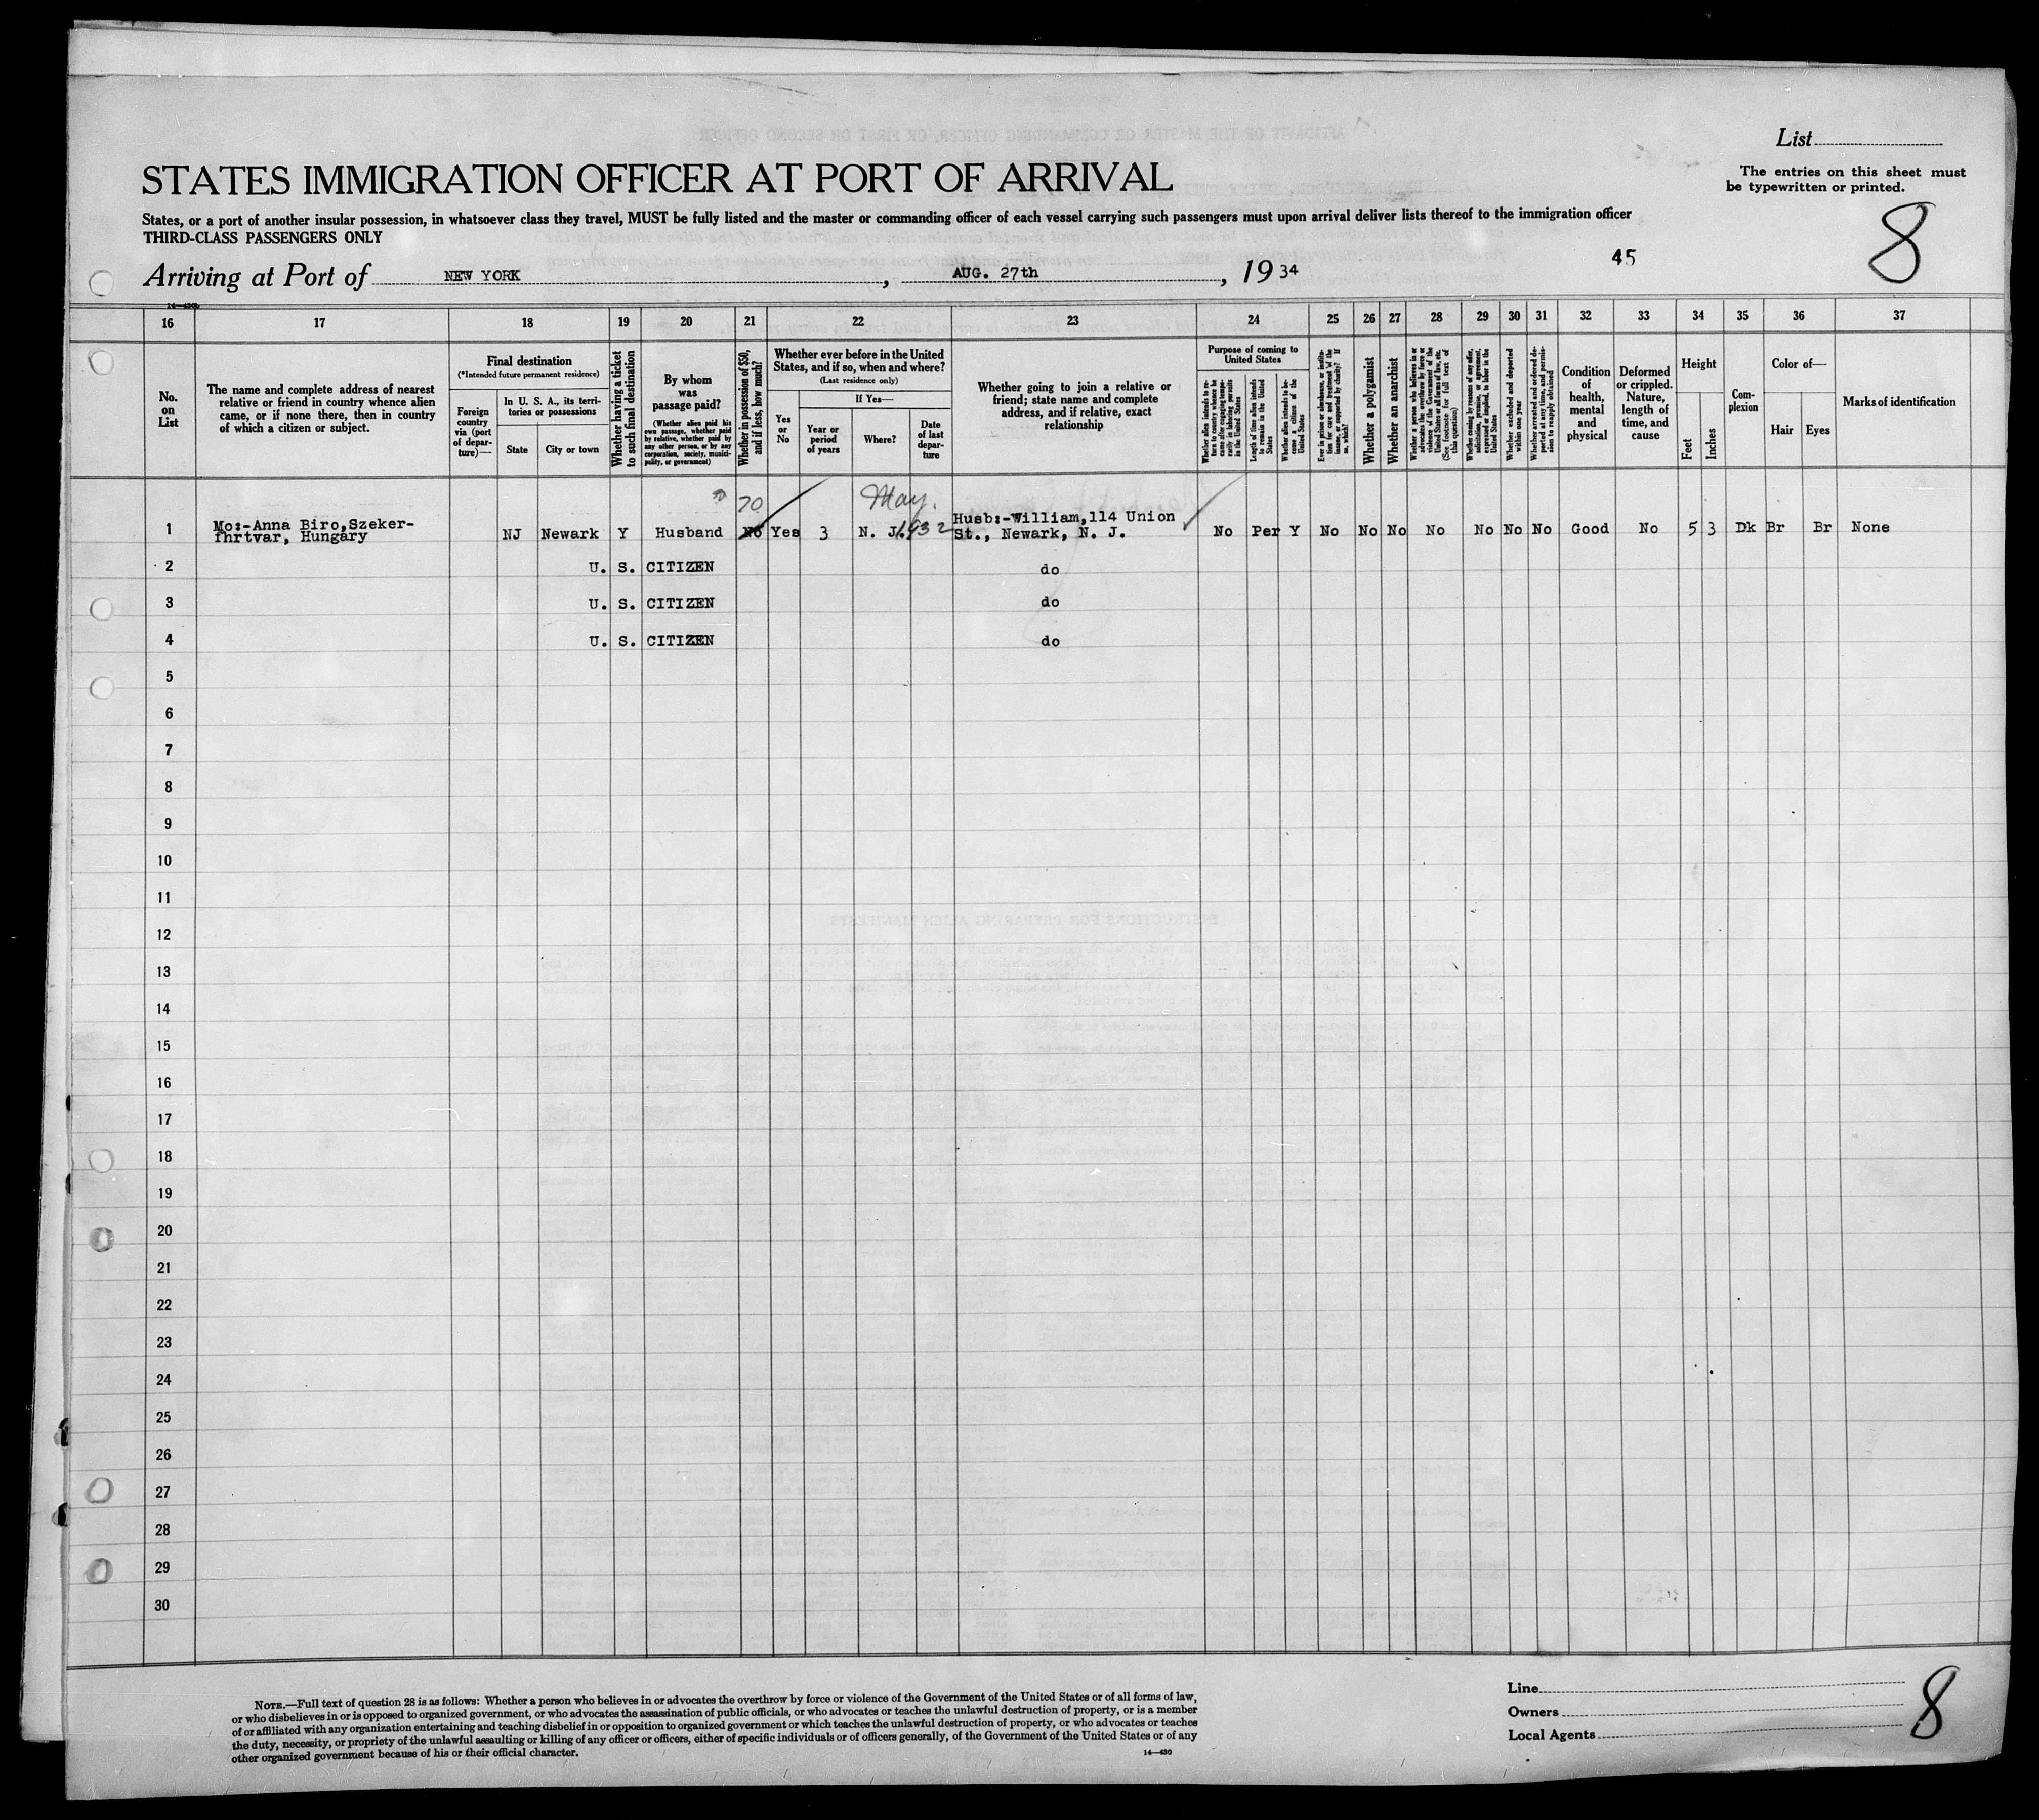 List
STATES IMMIGRATION OFFICER AT PORT OF ARRIVAL
The entries on this sheet must
be typewritten or printed.
States, or a port of another insular possession, in whatsoever class they travel, MUST be fully listed and the master or commanding officer of each vessel carrying such passengers must upon arrival deliver lists thereof to the immigration officer
THIRD-CLASS PASSENGERS ONLY
8
45
Arriving at Port of NEW YORK, AUG. 27th, 1934
14—430
16 17 18 19 20 21 22 23 24 25 26 27 28 29 30 31 32 33 34 35 36 37
No.
on
List
The name and complete address of nearest
relative or friend in country whence alien
came, or if none there, then in country
of which a citizen or subject.
Final destination
(*Intended future permanent residence)
Foreign
country
via (port
of depar-
ture)—
In U. S. A., its terri-
tories or possessions
State
City or town
Whether having a ticket
to such final destination
By whom
was
passage paid?
(Whether alien paid his
own passage, whether paid
by relative, whether paid by
any other person, or by any
corporation, society, munici-
pality, or government)
Whether in possession of $50,
and if less, how much?
Whether ever before in the United
States, and if so, when and where?
(Last residence only)
Yes
or
No
If Yes—
Year or
period
of years
Where?
Date
of last
depar-
ture
Whether going to join a relative or
friend; state name and complete
address, and if relative, exact
relationship
Purpose of coming to
United States
Whether alien intends to re-
turn to country whence he
came after engaging tempo-
rarily in laboring pursuits
in the United States
Length of time alien intends
to remain in the United
States
Whether alien intends to be-
come a citizen of the
United States
Ever in prison or almshouse, or institu-
tion for care and treatment of the
insane, or supported by charity? If
so, which?
Whether a polygamist
Whether an anarchist
Whether a person who believes in or
advocates the overthrow by force or
violence of the Government of the
United States or all forms of law, etc.
(See footnote for full text of
this question)
Whether coming by reason of any offer,
solicitation, promise, or agreement,
expressed or implied, to labor in the
United States
Whether excluded and deported
within one year
Whether arrested and ordered de-
ported at any time, and permis-
sion to reapply obtained
Condition
of
health,
mental
and
physical
Deformed
or crippled.
Nature,
length of
time, and
cause
Height
Feet
Inches
Com-
plexion
Color of—
Hair
Eyes
Marks of identification
70 May.
1 Mo:-Anna Biro,Szeker- Husb:-William,114 Union
fhrtvar, Hungary NJ Newark Y Husband No Yes 3 N. J. 1932 St., Newark, N. J. No Per Y No No No No No No No Good No 5 3 Dk Br Br None
2 U. S. CITIZEN do
3 U. S. CITIZEN do
4 U. S. CITIZEN do
5
6
7
8
9
10
11
12
13
14
15
16
17
18
19
20
21
22
23
24
25
26
27
28
29
30
NOTE.—Full text of question 28 is as follows: Whether a person who believes in or advocates the overthrow by force or violence of the Government of the United States or of all forms of law,
or who disbelieves in or is opposed to organized government, or who advocates the assassination of public officials, or who advocates or teaches the unlawful destruction of property, or is a member
of or affiliated with any organization entertaining and teaching disbelief in or opposition to organized government or which teaches the unlawful destruction of property, or who advocates or teaches
the duty, necessity, or propriety of the unlawful assaulting or killing of any officer or officers, either of specific individuals or of officers generally, of the Government of the United States or of any
other organized government because of his or their official character.
14—430
Line
Owners
Local Agents
8